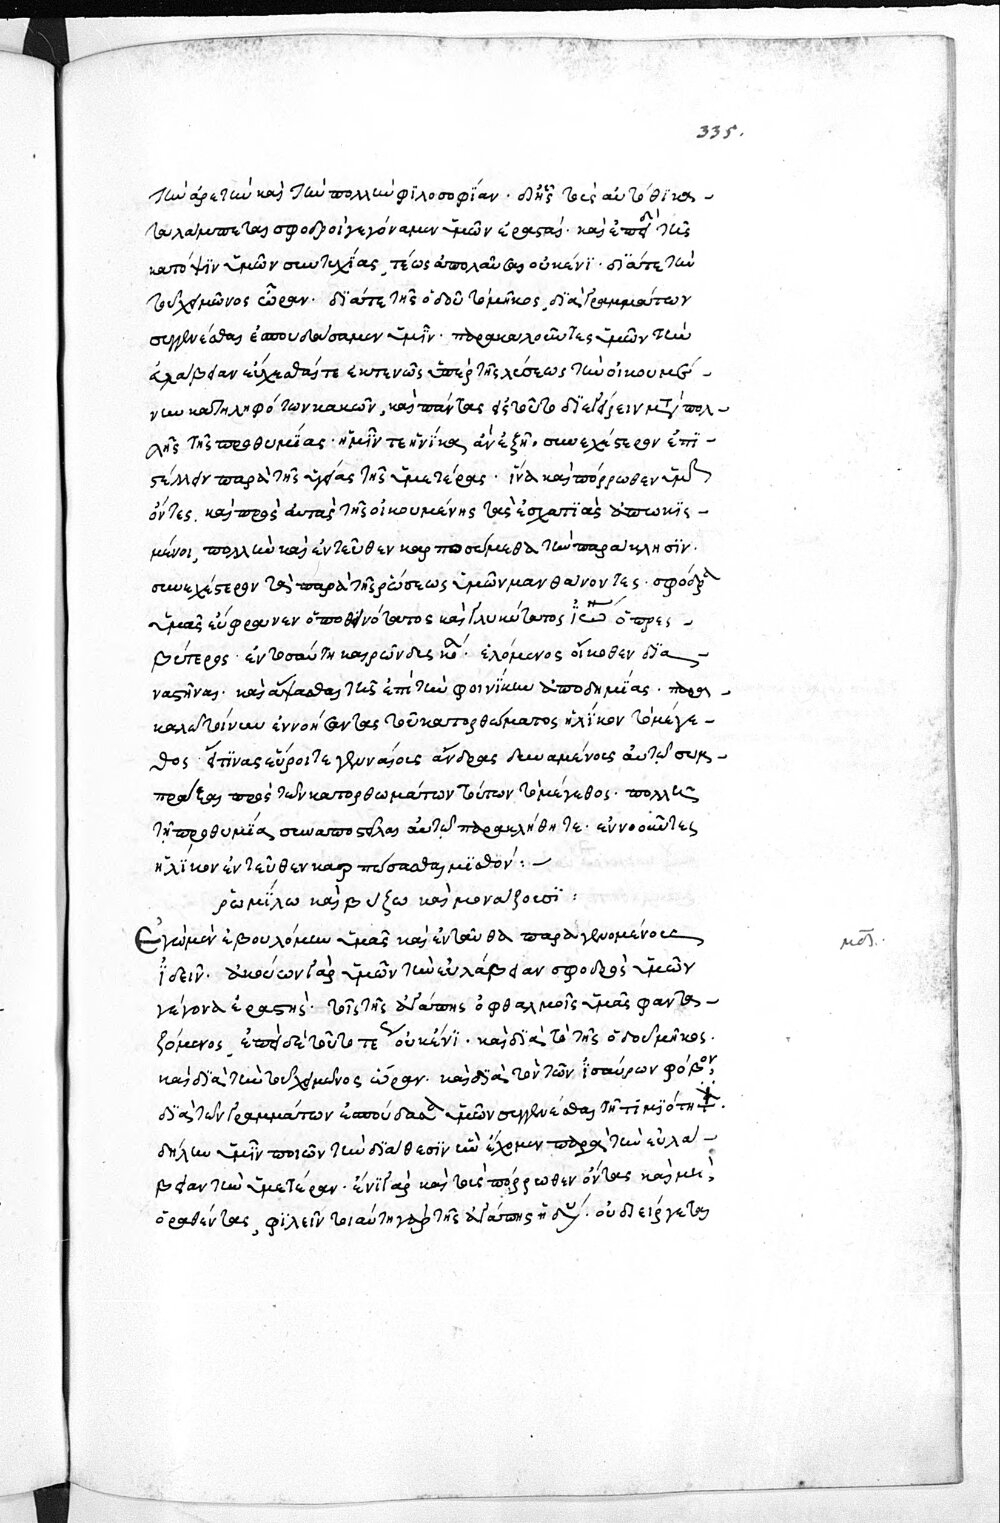 335.
τὴν ἀρετὴν καὶ τὴν πολλὴν φιλοσοφίαν. δι' ἧς τοῖς αὐτόθι κα-
ταλάμπεται σφοδροὶ γεγόναμεν ὑμῶν ἐρασταί. καὶ ἐπειδὴ τῆς
κατόψιν ὑμῶν συντυχίας, τέως ἀπολαῦσαι οὐκ ἔνι. διά τε τὴν
τοῦ χειμῶνος ὥραν. διά τε τῆς ὁδοῦ τὸ μῆκος, διὰ γραμμάτων
συγγενέσθαι ἐσπουδάσαμεν ὑμῖν. παρακαλοῦντες ὑμῶν τὴν
εὐλάβειαν εὔχεσθαί τε ἐκτενῶς ὑπὲρ τῆς λύσεως τῶν τὴν οἰκουμέ-
νην κατειληφότων κακῶν, καὶ πάντας εἰς τοῦτο διεγείρειν μετὰ πολ-
λῆς τῆς προθυμίας. ἡμῖν τε ἡνίκα ἂν ἐξῇ, συνεχέστερον ἐπι-
στέλλειν παρὰ τῆς ὑγείας τῆς ὑμετέρας. ἵνα καὶ πόρρωθεν ὑμῶν
ὄντες, καὶ πρὸς αὐτὰς τῆς οἰκουμένης τὰς ἐσχατιὰς ἀπῳκισ-
μένοι, πολλὴν καὶ ἐντεῦθεν καρπωσώμεθα τὴν παράκλησιν.
συνεχέστερον τὰ παρὰ τῆς ῥώσεως ὑμῶν μανθάνοντες. σφόδρα
ἡμᾶς εὔφρανεν ὁ ποθεινότατος καὶ γλυκύτατος ἰωάννης ὁ πρεσ-
βύτερος. ἐν τοσαύτῃ καιρῶν δυσκολίᾳ. ἑλόμενος οἴκοθεν δια-
ναστῆναι. καὶ ἅψασθαι τῆς ἐπὶ τὴν φοινίκην ἀποδημίας. παρα-
καλῶ τοίνυν ἐννοήσαντας τοῦ κατορθώματος ἡλίκον τὸ μέγε-
θος. εἴ τινας εὕροιτε γενναίους ἄνδρας δυναμένους αὐτῷ συμ-
πρᾶξαι πρὸς τῶν κατορθωμάτων τούτων τὸ μέγεθος. πολλῇ
τῇ προθυμίᾳ συναποστεῖλαι αὐτῷ παρακλήθητε. ἐννοοῦντες
ἡλίκον ἐντεῦθεν καρπώσασθαι μισθόν:-
ῥωμύλω καὶ βύζω καὶ μονάζουσι:
Ἐγὼ μὲν ἐβουλόμην ὑμᾶς καὶ ἐνταῦθα παραγενομένους
ἰδεῖν. ἀκούων γὰρ ὑμῶν τὴν εὐλάβειαν σφοδρὸς ὑμῶν
γέγονα ἐραστής. τοῖς τῆς ἀγάπης ὀφθαλμοῖς ὑμᾶς φαντα-
ζόμενος, ἐπεὶ δὲ τοῦτο τέως οὐκ ἔνι. καὶ διὰ τὸ τῆς ὁδοῦ μῆκος.
καὶ διὰ τὴν τοῦ χειμῶνος ὥραν. καὶ διὰ τὸν τῶν ἰσαύρων φόβον.
διὰ τῶν γραμμάτων ἐσπούδασα ὑμῶν συγγενέσθαι τῇ τιμιότητι.
δήλην ὑμῖν ποιῶν τὴν διάθεσιν ἣν ἔχομεν παρὰ τὴν εὐλά-
βειαν τὴν ὑμετέραν. ἔνι γὰρ καὶ τοὺς πόρρωθεν ὄντας καὶ μὴ
ὁραθέντας, φιλεῖν τοιαύτη γὰρ τῆς ἀγάπης ἡ δύναμις. οὐ διείργεται